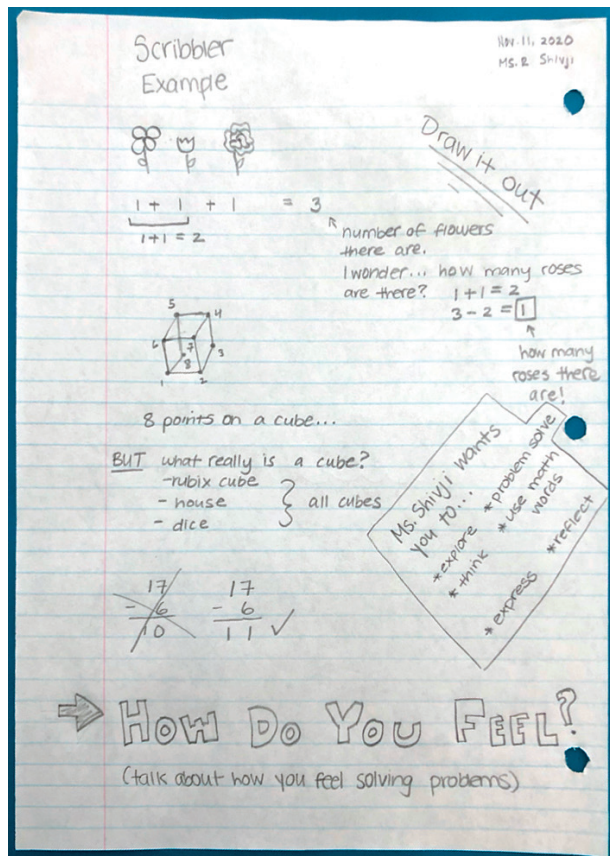 Scribbler
Example
Nov. 11, 2020
Ms. R Shivji
Draw it out
1 + 1 + 1 = 3
1+1 = 2
number of flowers
there are.
I wonder... how many roses
are there? 1+1=2
3-2 = 1
how many
roses there
are!
5
4
6
7
3
8
1
2
8 points on a cube...
BUT what really is a cube?
-rubix cube
- house
- dice
all cubes
Ms. Shivji wants
you to...
*explore
*think
*express
*problem solve
*use math
words
*reflect
17
- 6
10
17
- 6
11 ✓
How Do You Feel?
(talk about how you feel solving problems)